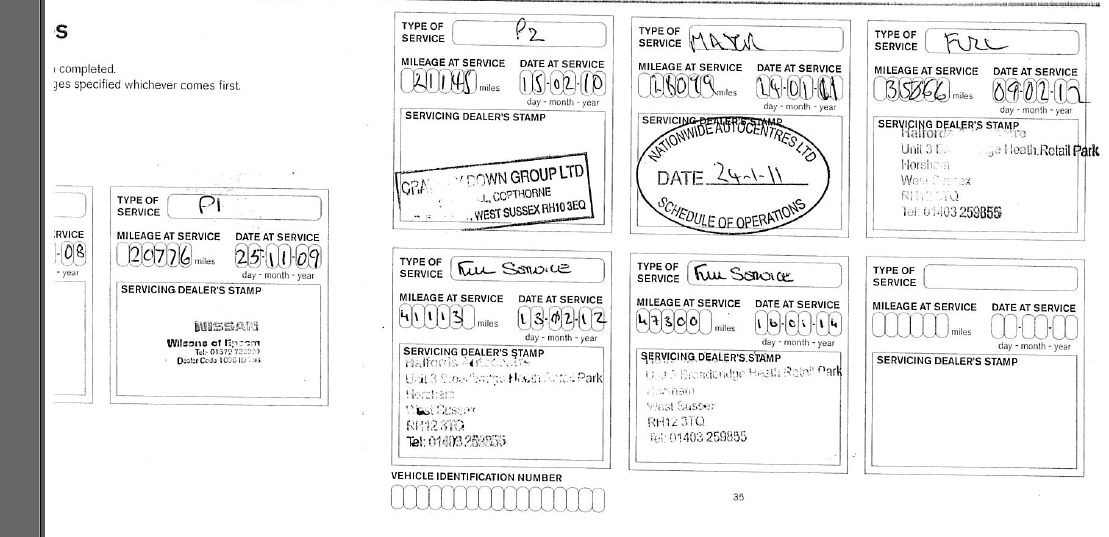 s
completed.
ges specified whichever comes first.
RVICE
08
- year
TYPE OF
SERVICE
P1
MILEAGE AT SERVICE
20776 miles
DATE AT SERVICE
25-11-09
day - month - year
SERVICING DEALER'S STAMP
NISSAN
Wilsons of Epsom
TYPE OF
SERVICE
P2
MILEAGE AT SERVICE
21145 miles
DATE AT SERVICE
15-02-10
day - month - year
SERVICING DEALER'S STAMP
DOWN GROUP LTD
COPTHORNE
, WEST SUSSEX RH10 3EQ
TYPE OF
SERVICE
MAJOR
MILEAGE AT SERVICE
28099 miles
DATE AT SERVICE
24-01-11
day - month - year
SERVICING DEALER'S STAMP
NATIONWIDE AUTOCENTRES LTD
DATE 24-1-11
SCHEDULE OF OPERATIONS
TYPE OF
SERVICE
FULL
MILEAGE AT SERVICE
35066 miles
DATE AT SERVICE
09-02-12
day - month - year
SERVICING DEALER'S STAMP
Halfords
Unit 3 Heath Retail Park
Horsham
West Sussex
RH12 3TQ
Tel: 01403 259855
TYPE OF
SERVICE
Full Service
MILEAGE AT SERVICE
41113 miles
DATE AT SERVICE
13-02-12
day - month - year
SERVICING DEALER'S STAMP
Halfords Autocentre
Unit 3 Broadbridge Heath Retail Park
Horsham
West Sussex
RH12 3TQ
Tel: 01403 259855
TYPE OF
SERVICE
Full Service
MILEAGE AT SERVICE
47300 miles
DATE AT SERVICE
16-01-14
day - month - year
SERVICING DEALER'S STAMP
Unit 3 Broadbridge Heath Retail Park
Horsham
West Sussex
RH12 3TQ
Tel: 01403 259855
TYPE OF
SERVICE
MILEAGE AT SERVICE
miles
DATE AT SERVICE
day - month - year
SERVICING DEALER'S STAMP
VEHICLE IDENTIFICATION NUMBER
35